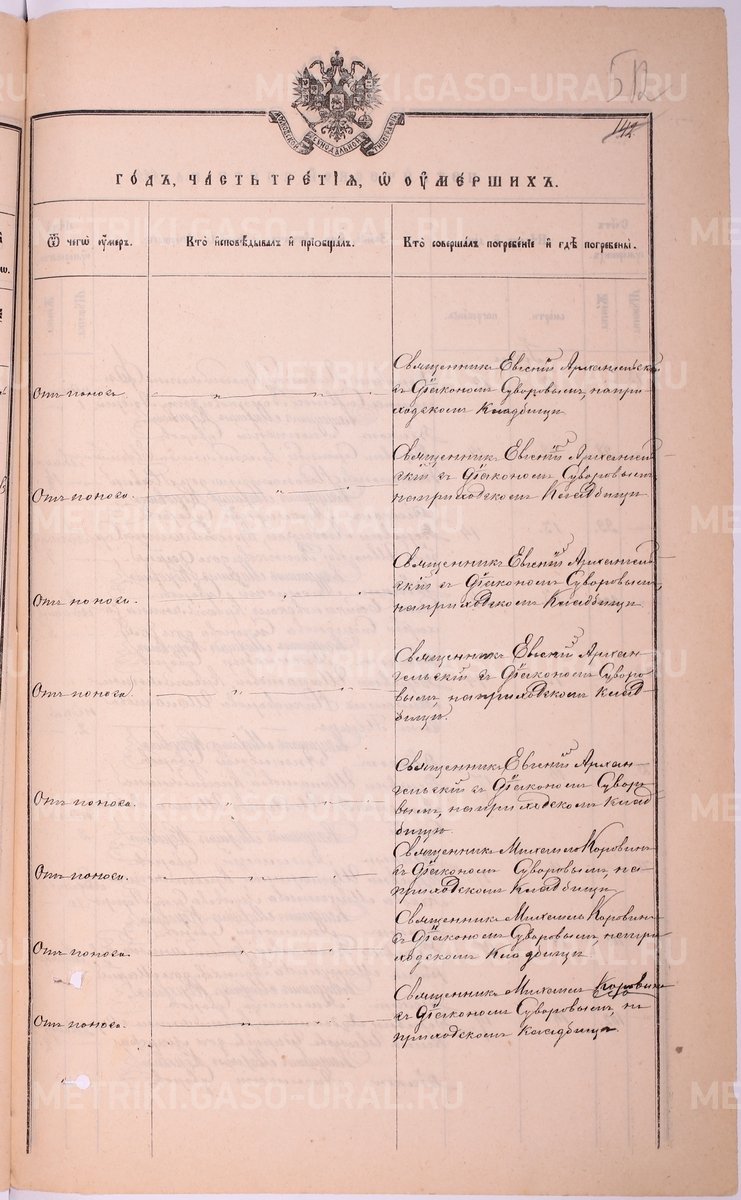 142
МОСКОВСКОЙ СѴНОДАЛЬНОЙ ТИПОГРАФІИ
ГОДЪ, ЧАСТЬ ТРЕТІЯ, Ѿ ОУМЕРШИХЪ.
Ѿ чегѡ оумеръ.
Кто исповѣдывалъ и пріобщалъ.
Кто совершалъ погребеніе и гдѣ погребены.
Отъ поноса.
Священникъ Евгеній Архангельскій
съ Діакономъ Суворовымъ, на при-
ходскомъ Кладбищѣ
Отъ поноса.
Священникъ Евгеній Архангель-
скій съ Діакономъ Суворовымъ
на приходскомъ Кладбищѣ
Отъ поноса.
Священникъ Евгеній Архангель-
скій съ Діакономъ Суворовымъ,
на приходскомъ Кладбищѣ
Отъ поноса
Священникъ Евгеній Архан-
гельскій съ Діакономъ Суворо-
вымъ, на приходскомъ Клад-
бищѣ.
Отъ поноса.
Священникъ Евгеній Архан-
гельскій съ Діакономъ Суворо-
вымъ, на приходскомъ Клад-
бищѣ.
Отъ поноса.
Священникъ Михаилъ Коровинъ
съ Діакономъ Суворовымъ, на
приходскомъ Кладбищѣ
Отъ поноса.
Священникъ Михаилъ Коровинъ
съ Діакономъ Суворовымъ, на при
ходскомъ Кладбищѣ
Отъ поноса.
Священникъ Михаилъ Коровинъ
съ Діакономъ Суворовымъ, на
приходскомъ Кладбищѣ.
METRIKI.GASO-URAL.RU